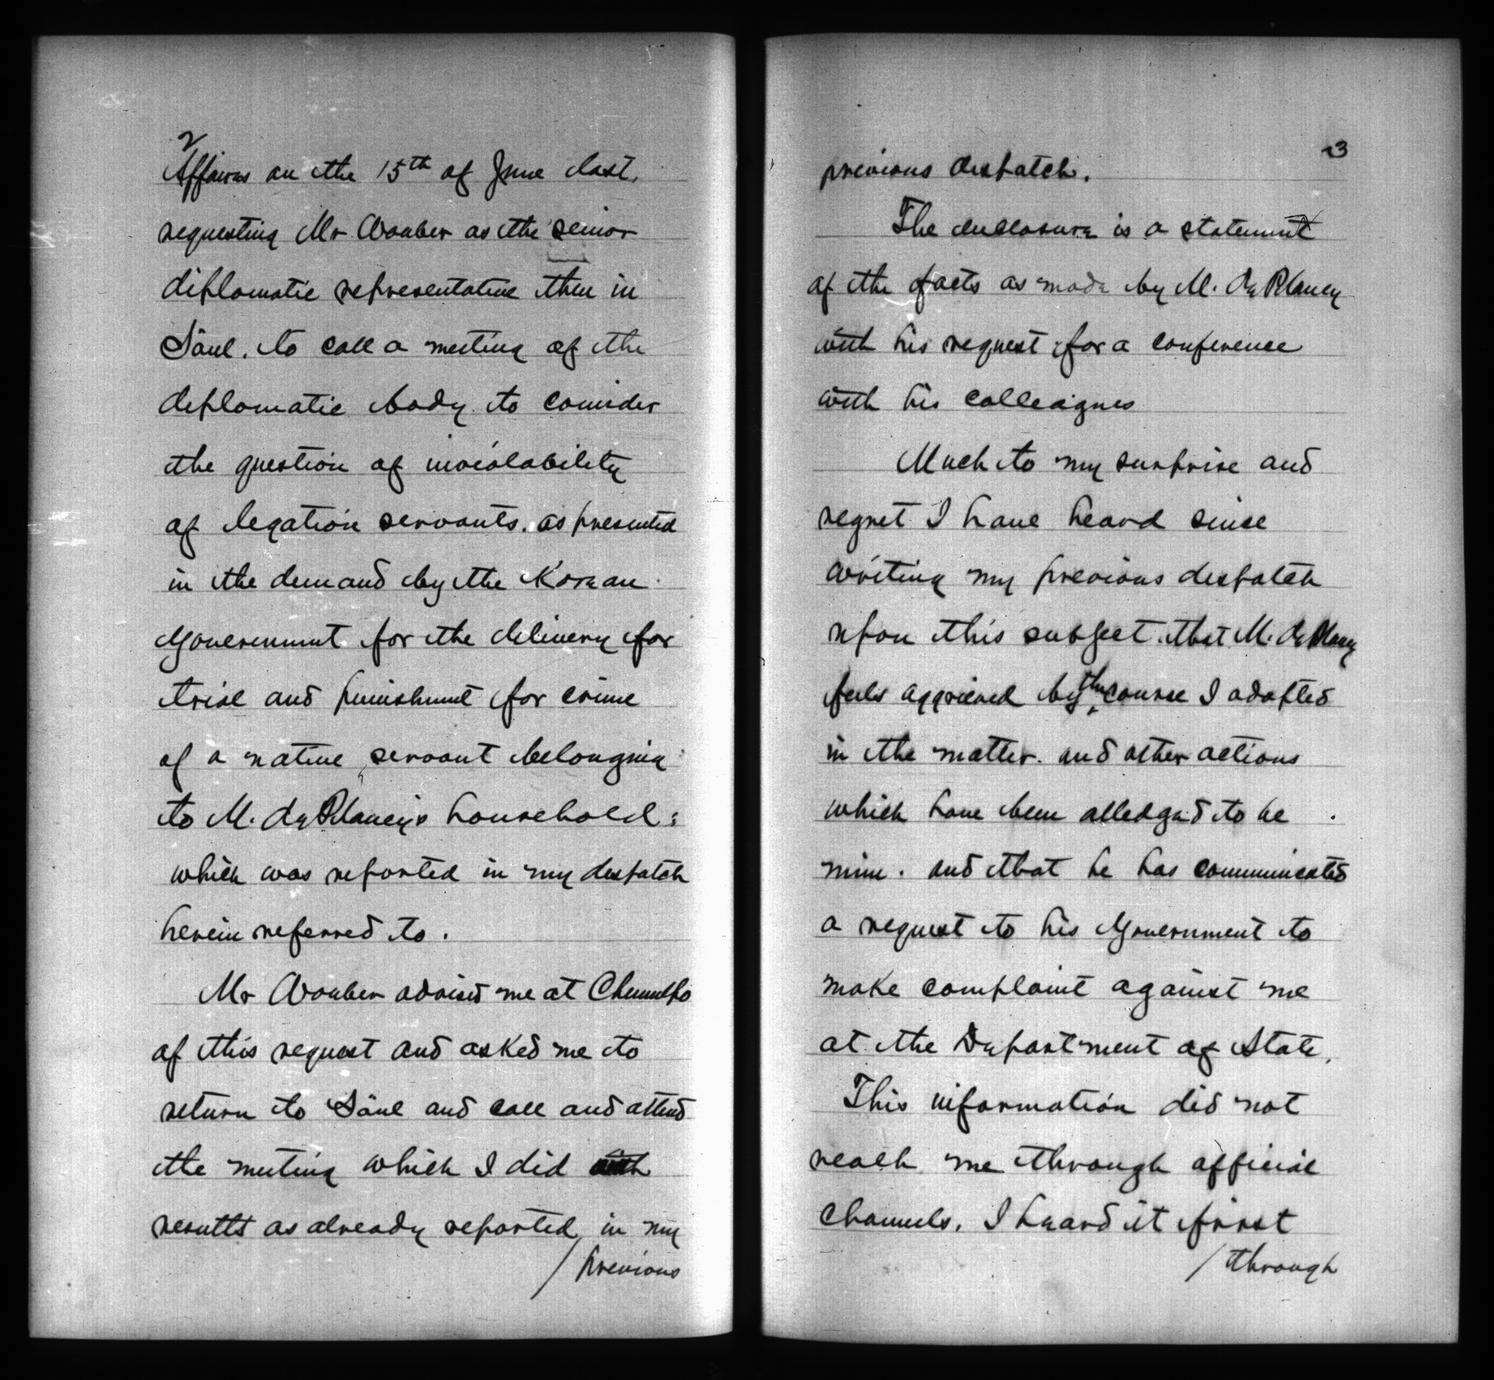 2
Affaires on the 15th of June last.
requesting Mr Waeber as the senior
diplomatic representative then in
Söul. to call a meeting of the
deplomatic body to consider
the question of inviolability
of legation servants. as presented
in the demand by the Korean
Government for the delivery for
trial and punishment for crime
of a native servant belonging
to M. de Plancy's household:
which was reported in my despatch
herein referred to.
Mr Waeber advised me at Chemulpo
of this request and asked me to
return to Söul and call and attend
the meeting which I did with
results as already reported in my
/previous
3
previous despatch.
The enclosure is a statement
of the facts as made by M. de Plancy
with his request for a conference
with his colleagues
Much to my surprise and
regret I have heard since
writing my previous despatch
upon this subject. that M. de Plancy
feels aggrieved by the course I adopted
in the matter. and other actions
which have been alledged to be
mine. and that he has communicated
a request to his Government to
make complaint against me
at the Department of State.
This information did not
reach me through official
channels. I heard it first
/through